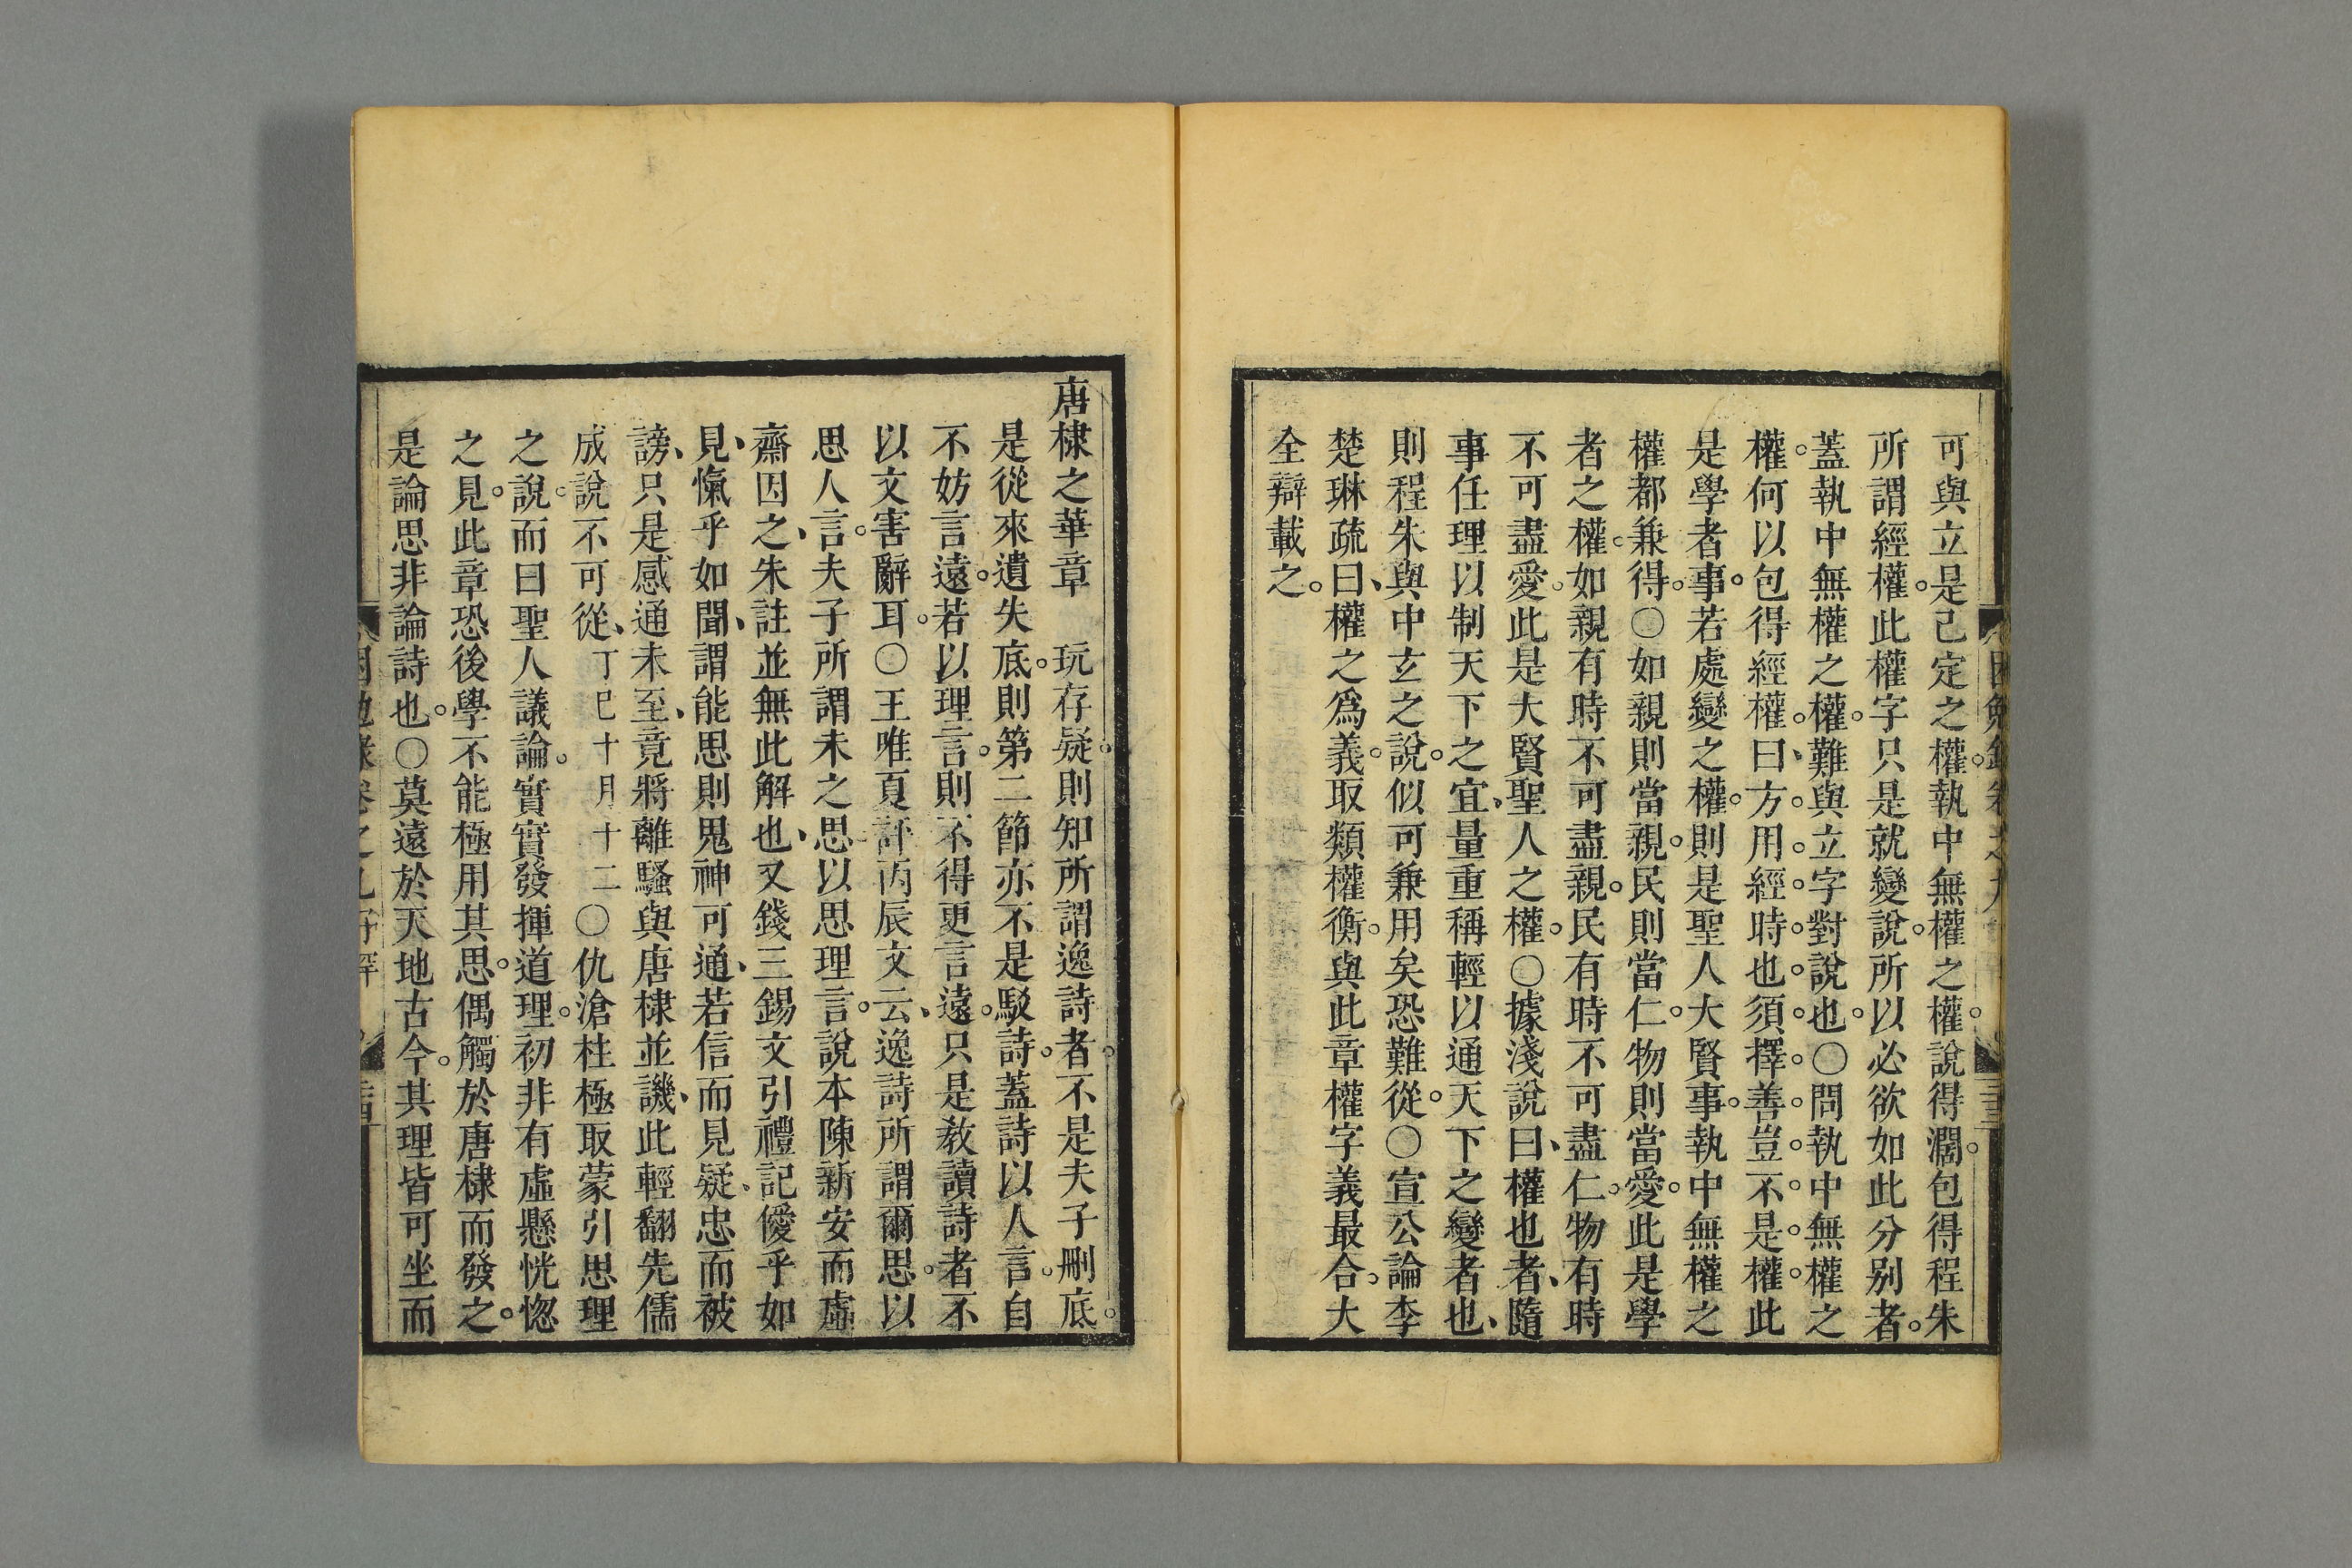 可與立是己定之權。執中無權之權。說得濶。包得程朱
所謂經權。此權字只是就變說。所以必欲如此分别者。
蓋執中無權之權。難與立字對說也。○問執中無權之
權。何以包得經權。曰、方。用。經。時。也。須。擇。善。豈。不。是。權。此
是學者事。若處變之權。則是聖人大賢事。執中無權之
權都兼得。○如親則當親。民則當仁。物則當愛。此是學
者之權。如親有時不可盡親。民有時不可盡仁。物有時
不可盡愛。此是大賢聖人之權。○據淺說曰、權也者、隨
事任理以制天下之宜、量重稱輕以通天下之變者也、
則程朱與中玄之說。似可兼用矣恐難從。○宣公論李
楚琳疏曰、權之爲義。取類權衡。與此章權字義最合。大
全辯載之。
唐棣之華章　玩存疑。則知所謂逸詩者。不是夫子刪底。
是從來遺失底。則第二節亦不是駁詩。蓋詩以人言。自
不妨言遠。若以理言。則不得更言遠。遠只是敎讀詩者不
以文害辭耳。○王唯夏評丙辰文云、逸詩所謂爾思。以
思人言。夫子所謂未之思以思理言。說本陳新安而虛
齋因之、朱註並無此解也、又錢三錫文引禮記僾乎如
見、愾乎如聞、謂能思則鬼神可通、若信而見疑、忠而被
謗、只是感通未至、竟將離騷與唐棣並譏、此輕翻先儒
成說不可從、丁巳十月十二○仇滄柱極取蒙引思理
之說。而曰聖人議論。實實發揮道理。初非有虛懸恍惚
之見。此章恐後學不能極用其思。偶觸於唐棣而發之。
是論思非論詩也。○莫遠於天地古今。其理皆可坐而